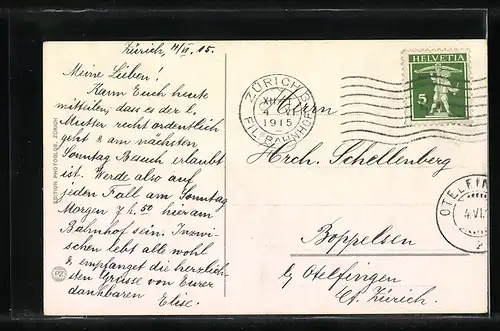 Zürich, 4/VI. 15.
Meine Lieben!
Kann Euch heute
mitteilen, dass es der l.
Mutter recht ordentlich
geht & am nächsten
Sonntag Besuch erlaubt
ist. Werde also auf
jeden Fall am Sonntag
Morgen 7 h. 50 hier am
Bahnhof sein. Inzwi-
schen lebt alle wohl
& empfanget die herzlich-
sten Grüsse von Eurer
dankbaren Elise.
EDITION PHOTOGLOB, ZÜRICH
PZ
ZÜRICH
XII
4 VI
1915
FIL. BAHNHOF
HELVETIA
5
Herrn
Hrch. Schellenberg
Boppelsen
b/ Otelfingen
Ct. Zürich.
OTELFIN
4.VI.1